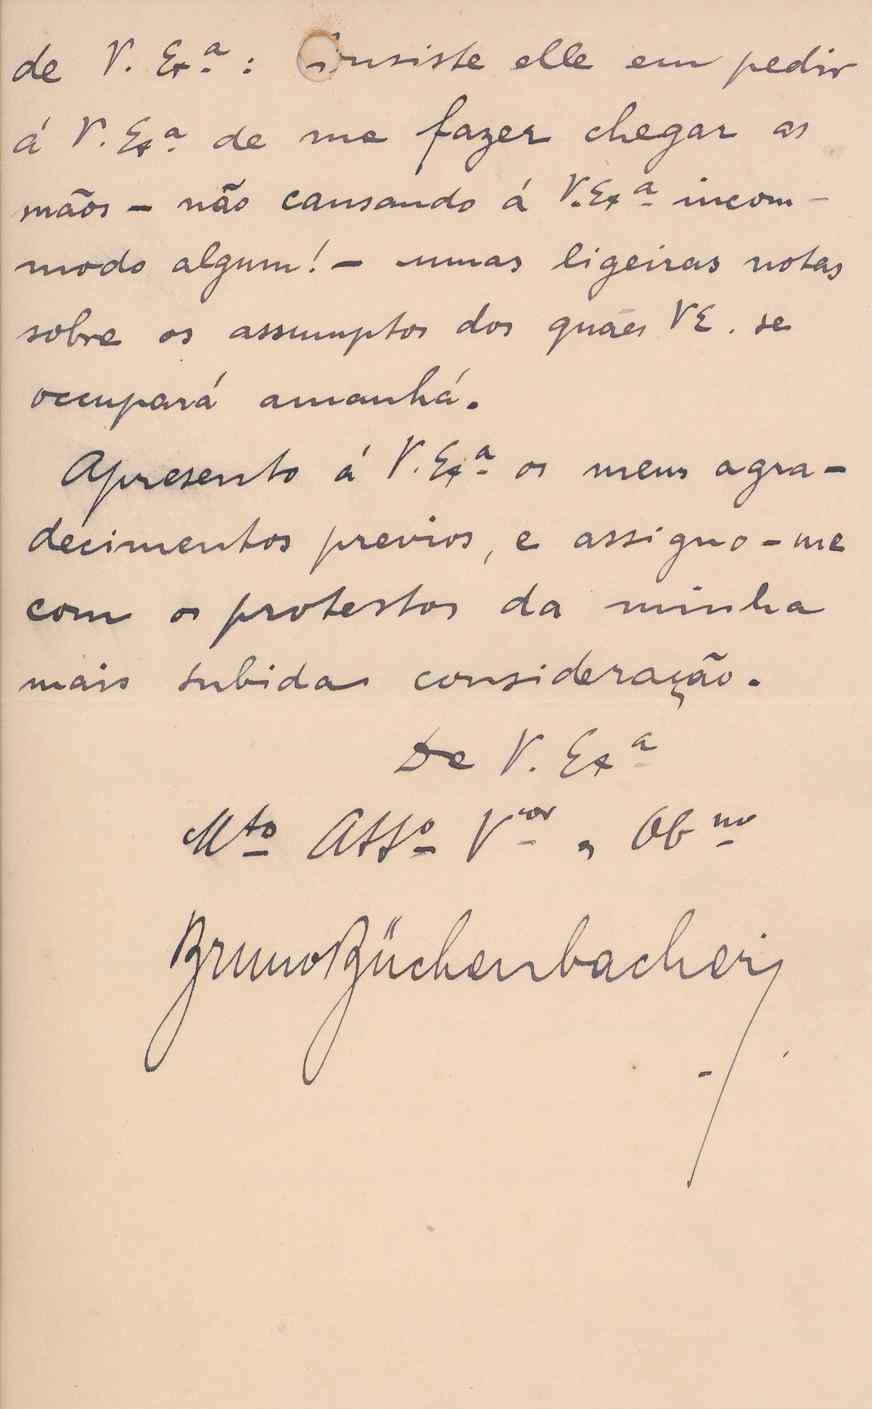 de V. Exª: Consiste elle em pedir
á V. Exª de me fazer chegar as
mãos – não causando á V. Exª incom-
modo algum! – umas ligeiras notas
sobre os assumptos dos quaes VE. se
occupará amanhã.
Apresento á V. Exª os meus agra-
decimentos previos, e assigno-me
com os protestos da minha
mais subida consideração.
De V. Exª
Mto Atto Vor e Obmo
Bruno Büchenbacher